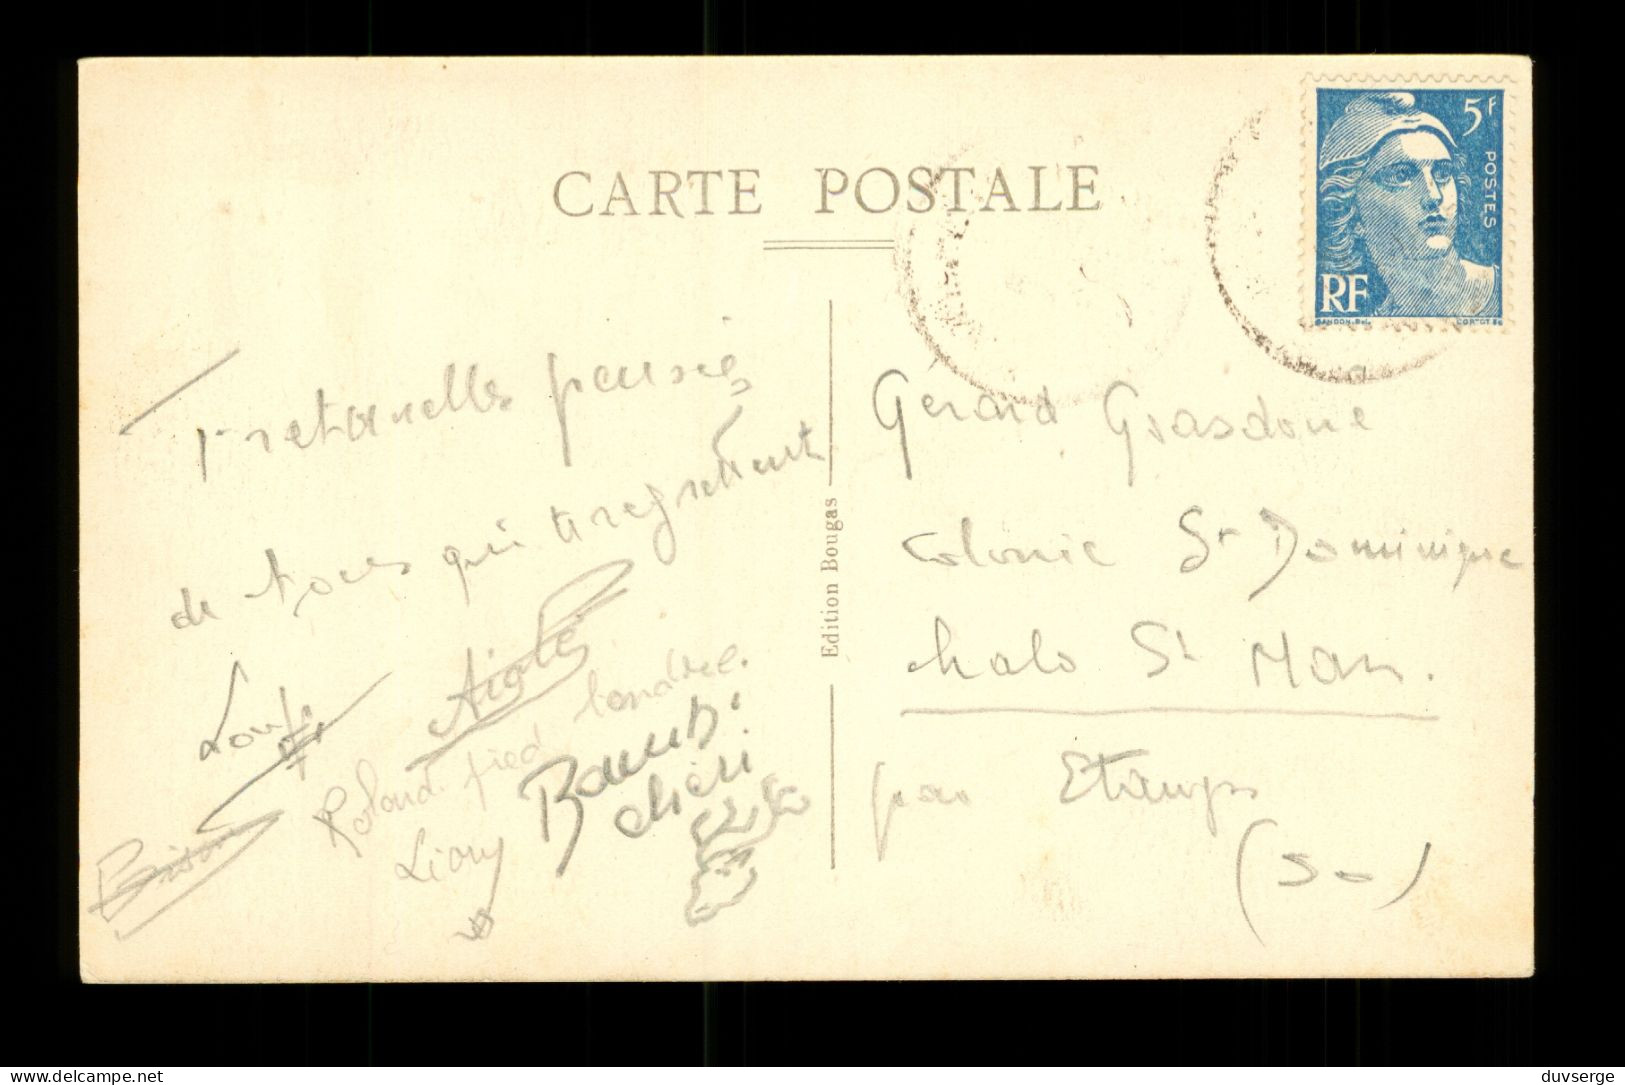 CARTE POSTALE
5F
POSTES
RF
Fraternelles pensées
de tous qui te regrettent
Loup
Aigle
Roland pied tendre.
Bison
Lion
Bambi
chéri
Edition Bougas
Gérard Grasdoue
Colonie St Dominique
chalo St Mars.
par Etampes
(S-O)
delcampe.net
duvserge